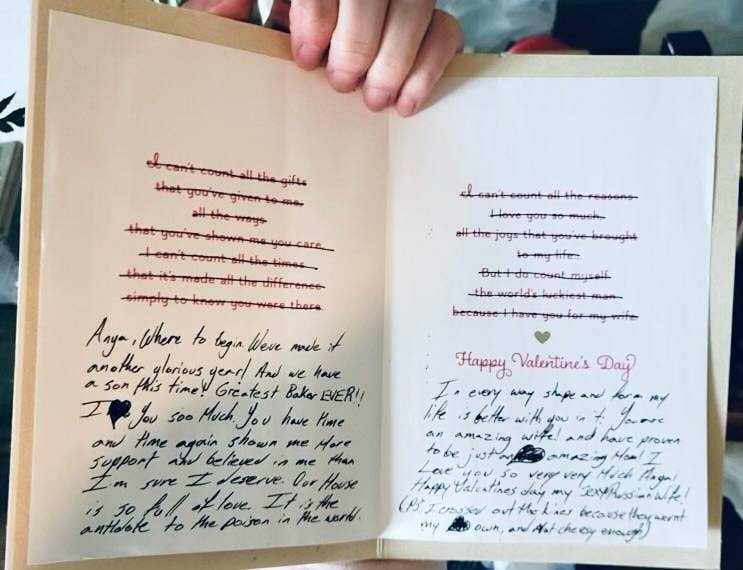 I can't count all the gifts
that you've given to me,
all the ways
that you've shown me you care.
I can't count all the times
that it's made all the difference
simply to know you were there.
Anya, Where to begin. Weve made it
another glorious year! And we have
a son this time! Greatest Baker EVER!!
I You soo Much. You have time
and time again shown me More
support and believed in me than
I'm sure I deserve. Our House
is so full of love. It is the
antidote to the poison in the world.
I can't count all the reasons
I love you so much,
all the joys that you've brought
to my life.
But I do count myself
the world's luckiest man
because I have you for my wife.
Happy Valentine's Day
In every way shape and form my
life is better with you in it. You are
an amazing wife! and have proven
to be just amazing Mom! I
Love you so very very Much Anya!
Happy Valentines day my Sexy Russian wife!
(PS. I crossed out the lines because they wernt
my own, and Not cheesy enough)